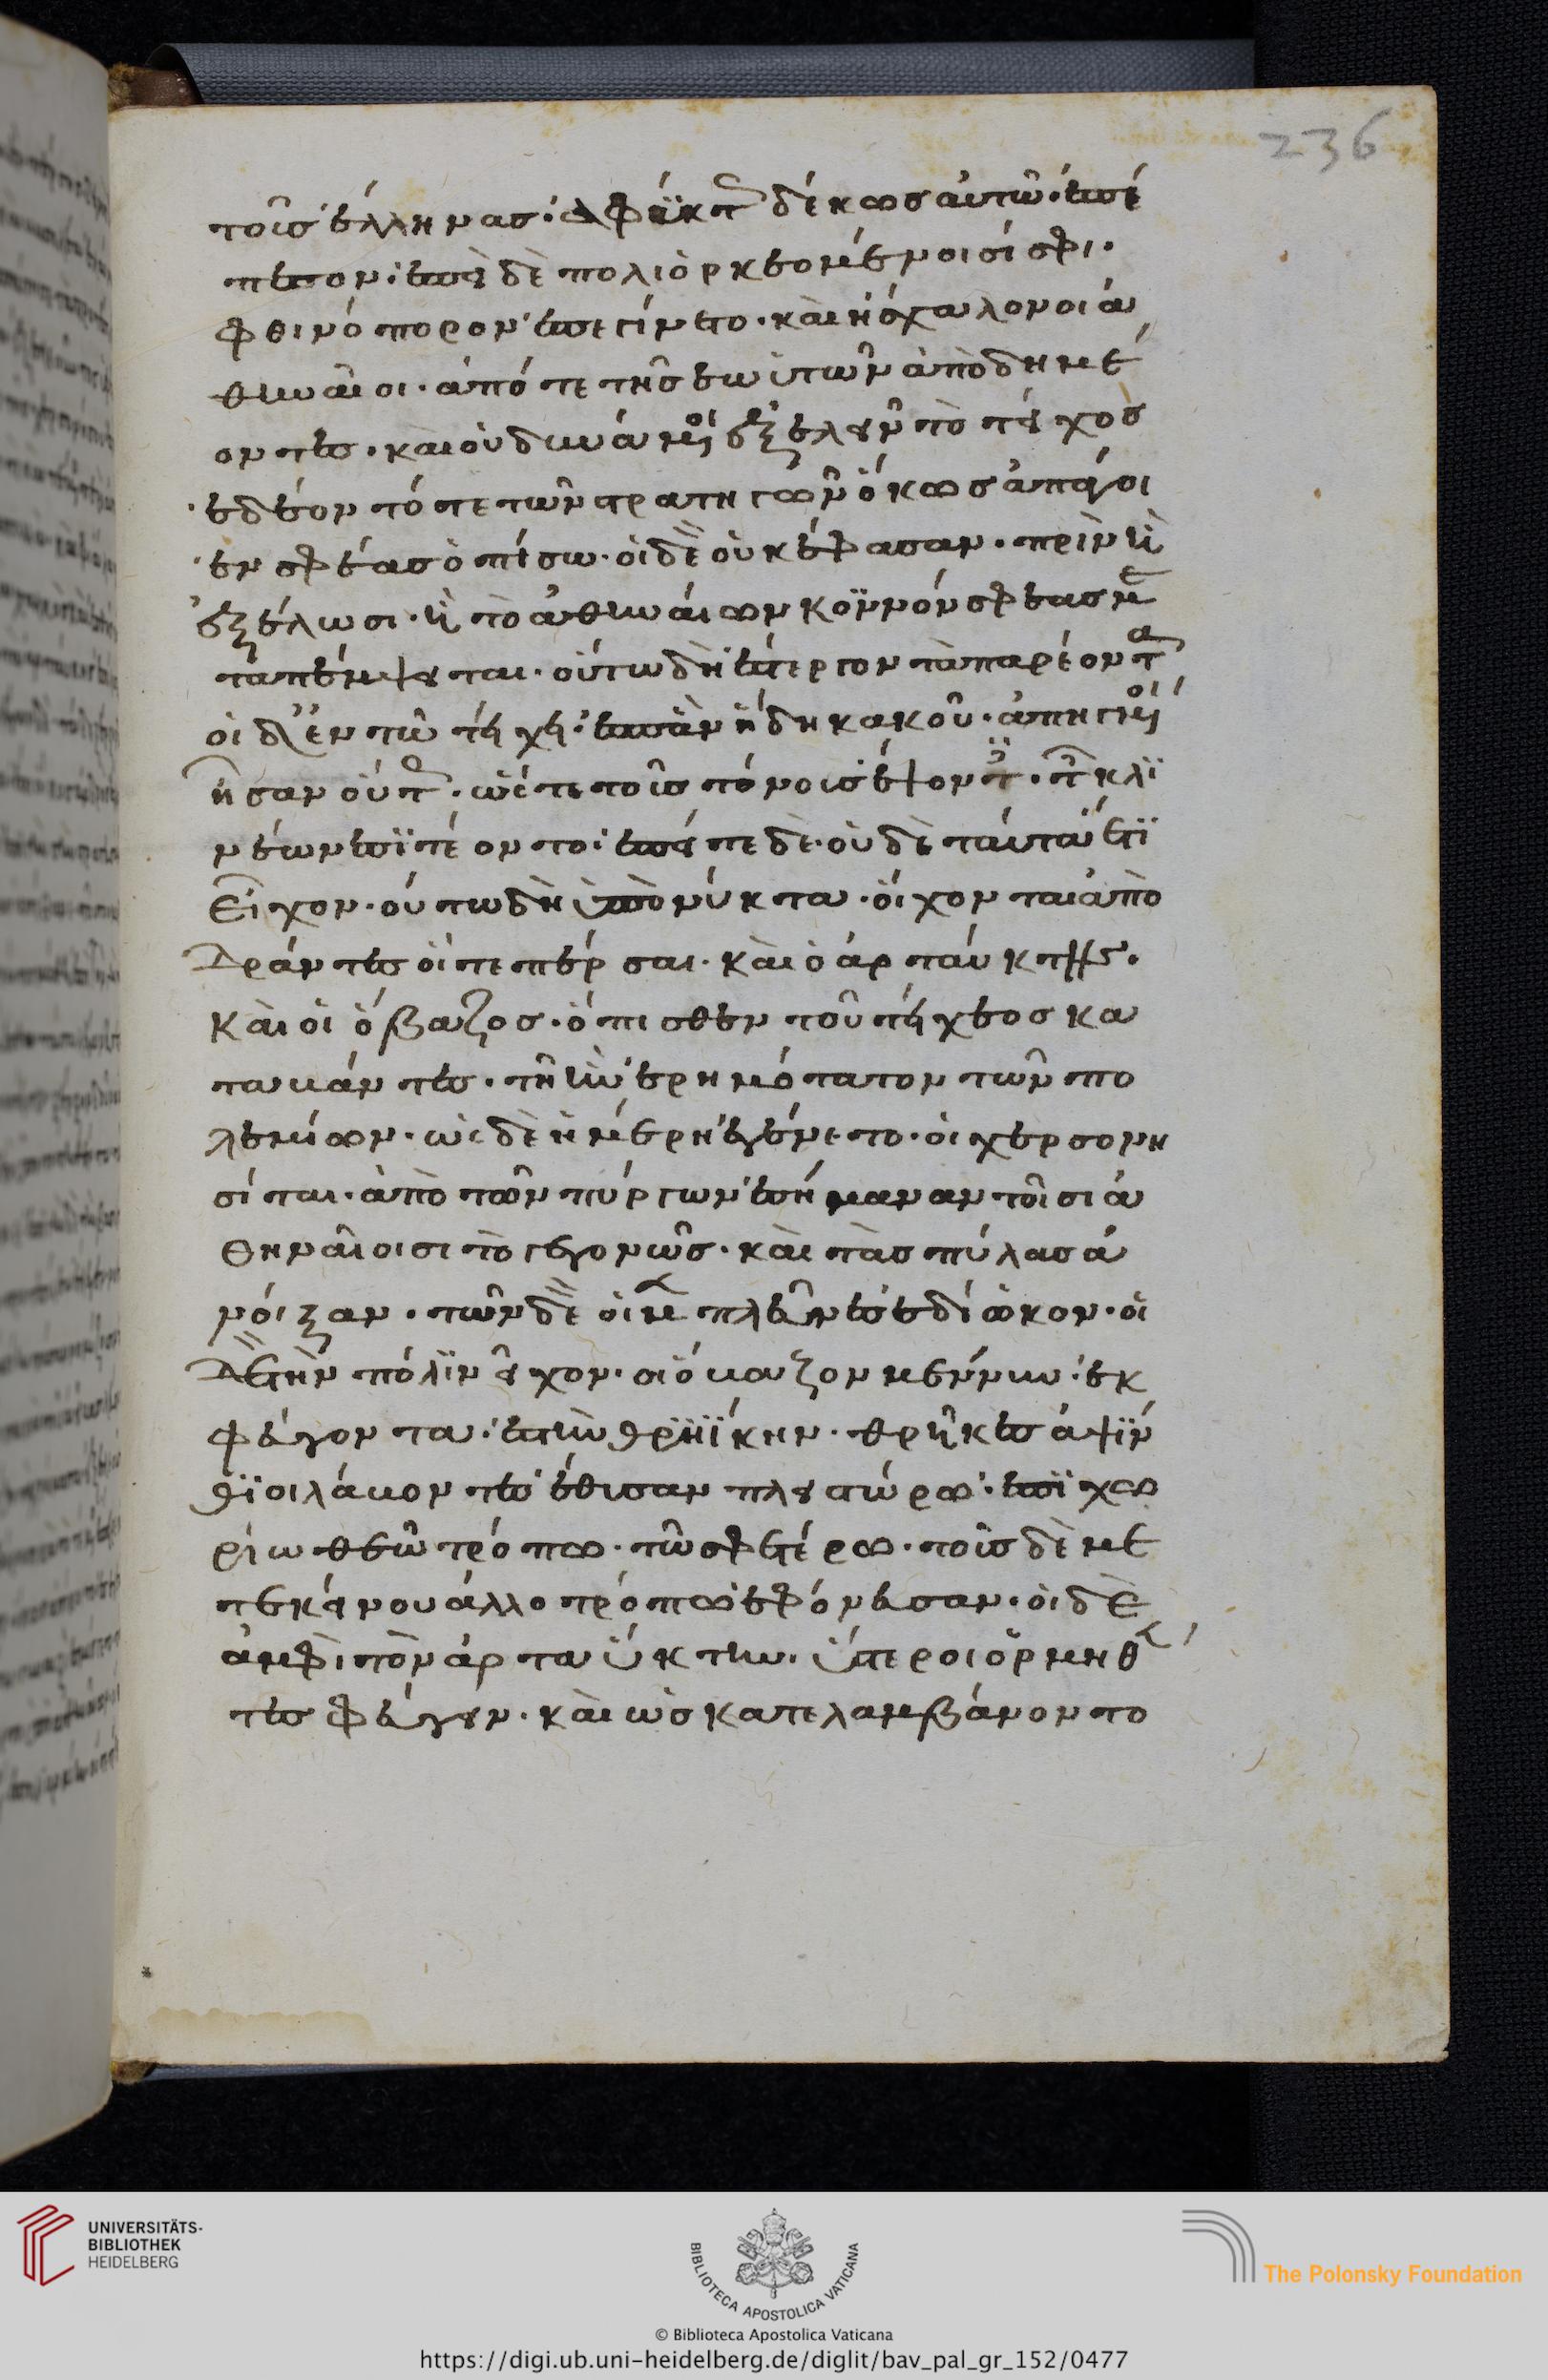 τοὺς ἕλληνας· ἀφύκτως δέ κως αὐτῶ· ἐπέ
πεσον· ἐπεὶ δὲ πολιορκεομένοισί σφι·
φθινόπορον ἐπεγίνετο· καὶ ἤσχαλον οἱ ἀ
θηναῖοι· ἀπό τε τῆς ἑωϋτῶν ἀποδημέ
οντες· καὶ οὐ δυνάμενοι ἐξελεῖν τὸ τεῖχος
ἐδέοντό τε τῶν στρατηγῶν ὅκως ἀπάγοι
εν σφέας ὀπίσω· οἱ δὲ οὐκ ἔφασαν· πρὶν ἢ
ἐξέλωσι· ἢ τὸ ἀθηναίων κοινόν σφεας με
ταπέμψεται· οὕτω δὴ ἔστεργον τὰ παρεόντα
οἱ δ' ἐν τῶ τείχει· ἐς πᾶν ἤδη κακοῦ· ἀπηγμένοι
ἦσαν οὕτως· ὥστε τοὺς τόνους ἕψοντες· τῶν κλι
νέων ἐσιτέοντο· ἐπείτε δὲ οὐδὲ ταῦτα ἔτι
εἶχον· οὕτω δὴ ὑπὸ νύκτα· οἴχονται ἀπο
δράντες οἵ τε πέρσαι· καὶ ὁ ἀρταύκτης·
καὶ οἱ όβαζος· ὄπισθεν τοῦ τείχεος κα
ταβάντες· τῆ ἦν ἐρημότατον τῶν πο
λεμίων· ὡς δὲ ἡμέρη ἐγένετο· οἱ χερσονη
σίται· ἀπὸ τῶν πύργων ἐσήμαναν τοῖσι ἀ
θηναίοισι τὸ γεγονώς· καὶ τὰς πύλας ἄ
νοιξαν· τῶν δὲ οἱ μὲν πλεῦνες ἐδίωκον· οἱ
δὲ τὴν πόλιν εἶχον· οιόβαζον μέν νυν· ἐκ
φεύγοντα· ἐς τὴν θρηϊκην· θρῆκες ἀψίν
θιοι λαβόντες ἔθυσαν πλειστώρω· ἐπιχω
ρίω θεῶ τρόπω· τῶ σφετέρω· τοὺς δὲ με
τεκείνου άλλο τρόπω ἐφόνευσαν· οἱ δὲ
ἀμφὶ τὸν ἀρταΰκτην· ὕστεροι ὁρμηθέν
τες φεύγειν· καὶ ὡς κατελαμβάνοντο
236
UNIVERSITÄTS-
BIBLIOTHEK
HEIDELBERG
BIBLIOTECA APOSTOLICA VATICANA
The Polonsky Foundation
© Biblioteca Apostolica Vaticana
https://digi.ub.uni-heidelberg.de/diglit/bav_pal_gr_152/0477